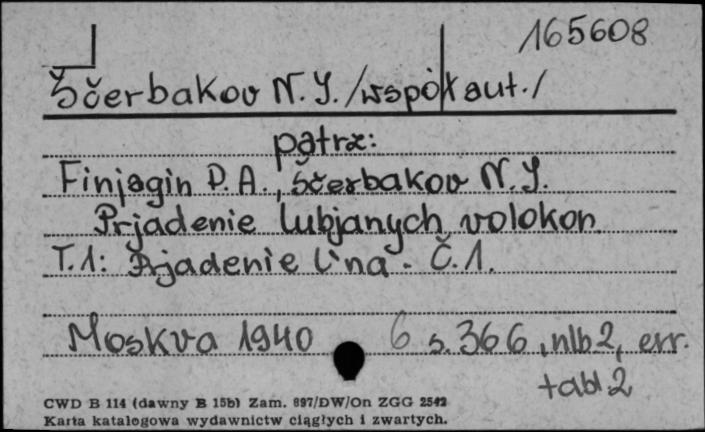 165608
Ščerbakov N. J. /współaut./
patrz:
Finjagin P. A., Ščerbakov N. J.
Prjadenie lubjanych volokon
T. 1: Prjadenie l'na. Č. 1.
Moskva 1940 6 s. 366, nlb 2, err.
tabl 2
CWD B 114 (dawny B 15b) Zam. 897/DW/On ZGG 2542
Karta katalogowa wydawnictw ciągłych i zwartych.